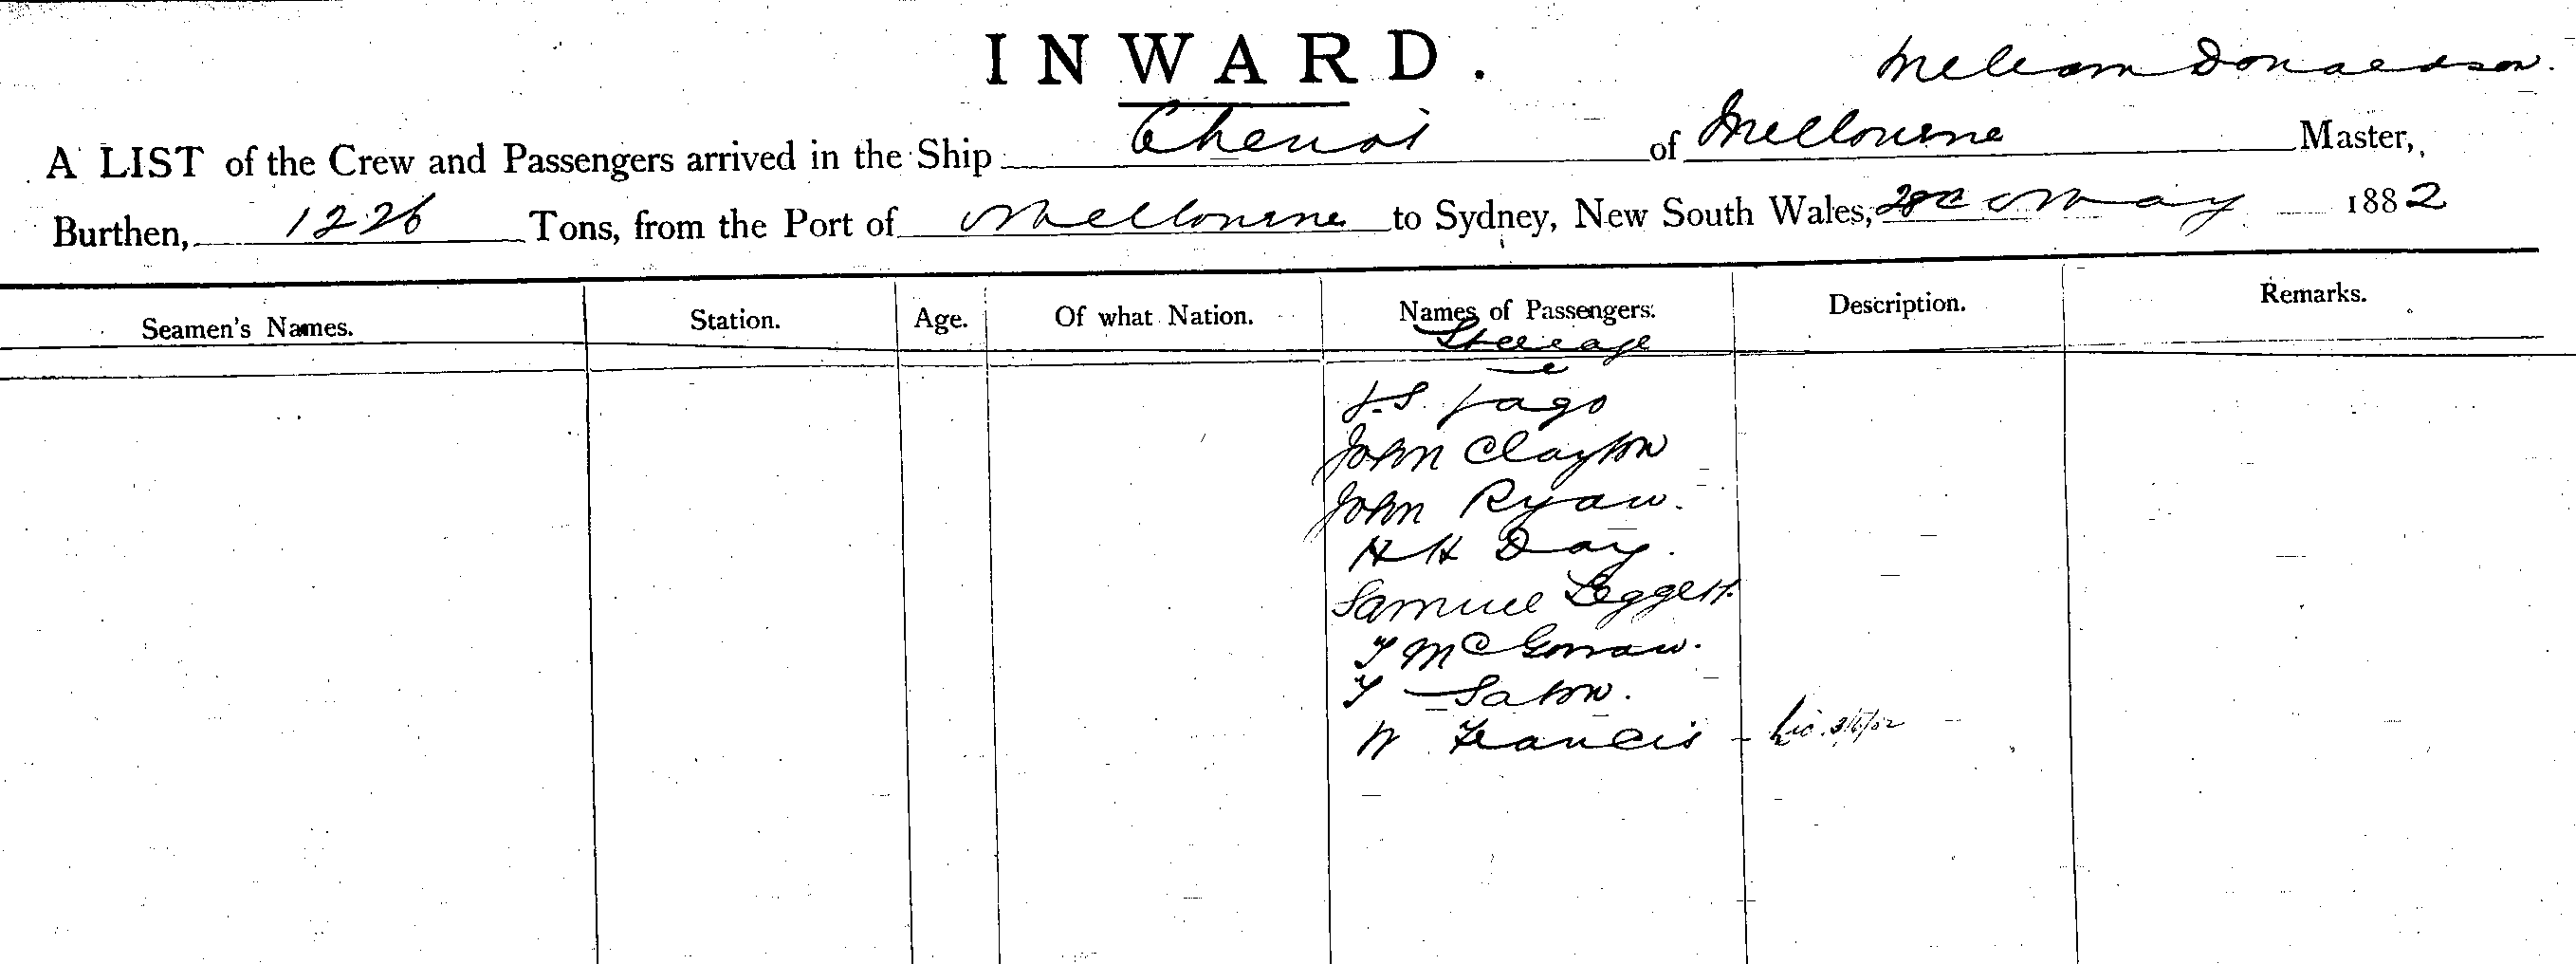 INWARD.
Donaldson.
A LIST of the Crew and Passengers arrived in the Ship Cheviot of Melbourne Master,
Burthen, 1226 Tons, from the Port of Melbourne to Sydney, New South Wales, May 1882
Seamen's Names. Station. Age. Of what Nation. Names of Passengers. Description. Remarks.
Steerage
J.S. Jago
John Clayton
John Ryan.
H H Day.
Samuel Leggett.
T McGorran.
T Saton.
W Francis